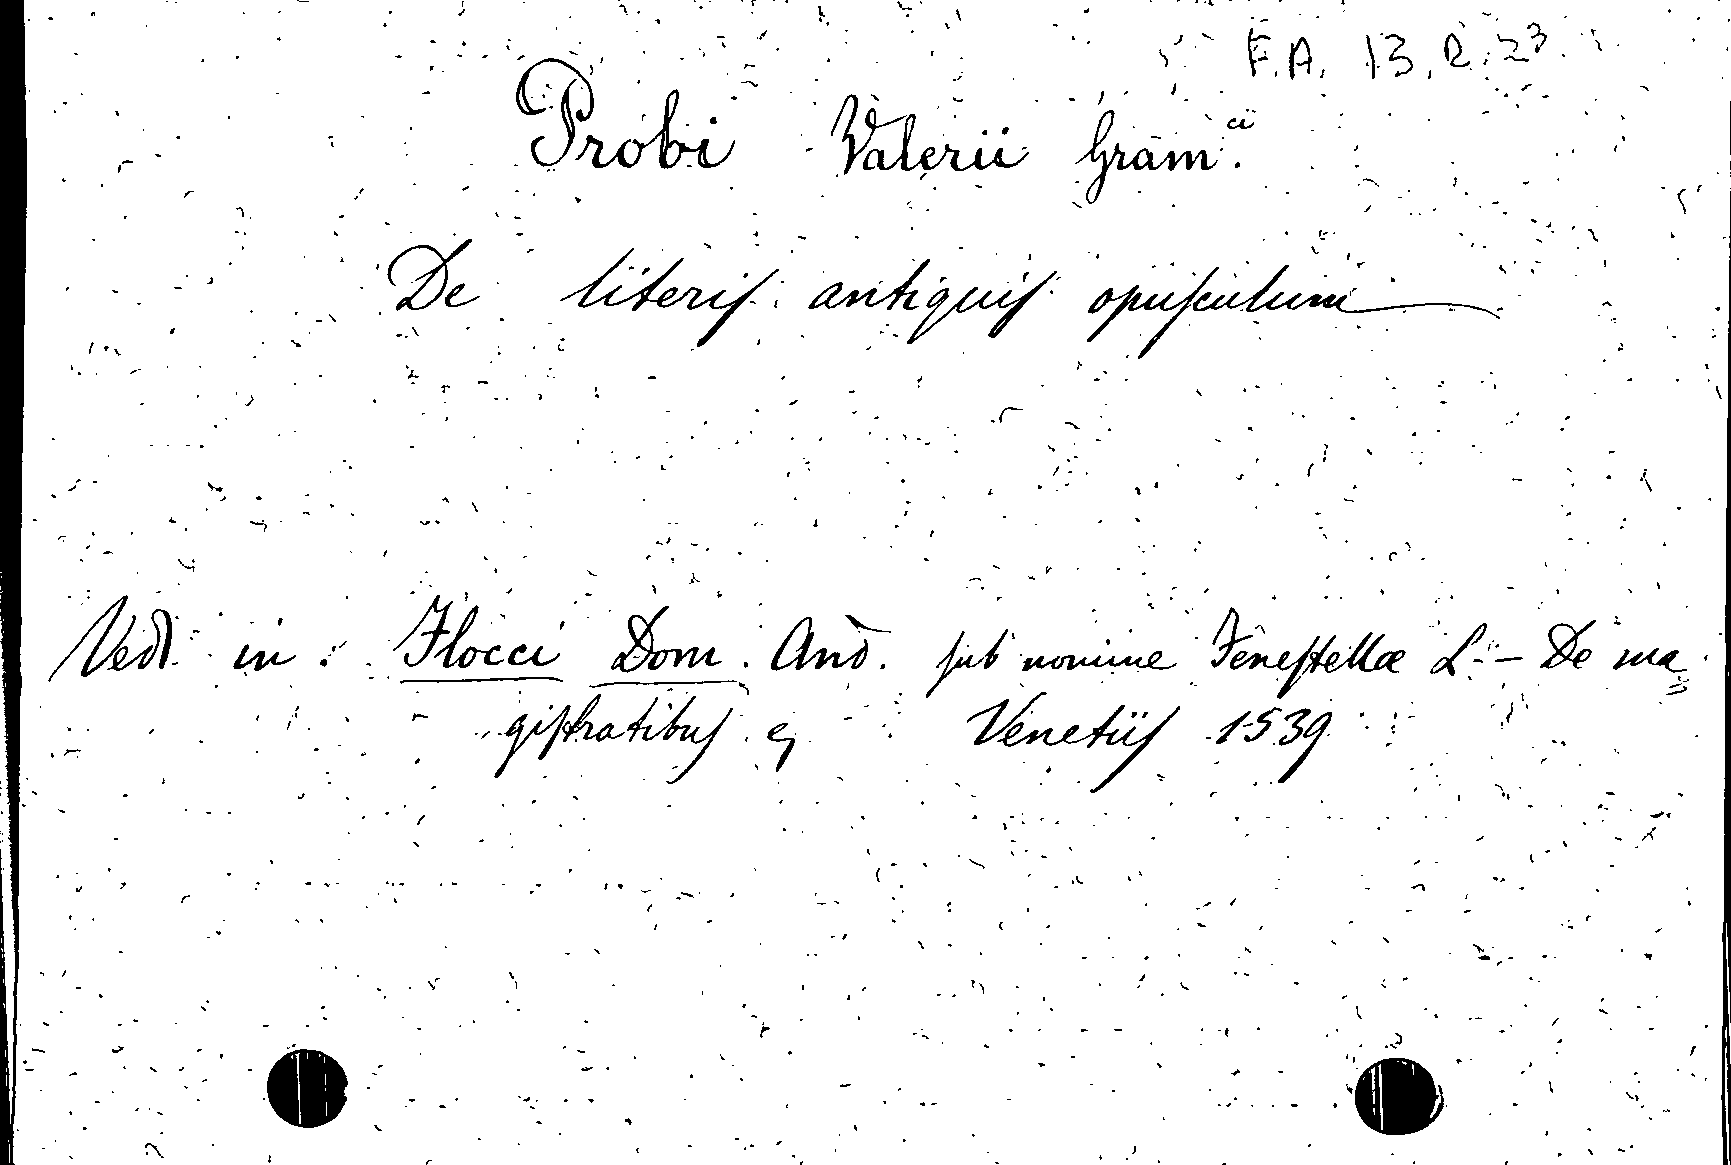 F.A. 13. R. 23
Probi Valerii Gram.ci
De literis antiquis opusculum
Vedi in: Flocci Dom. And. sub nomine Fenestellæ L. - De ma
gistratibus Venetiis 1539